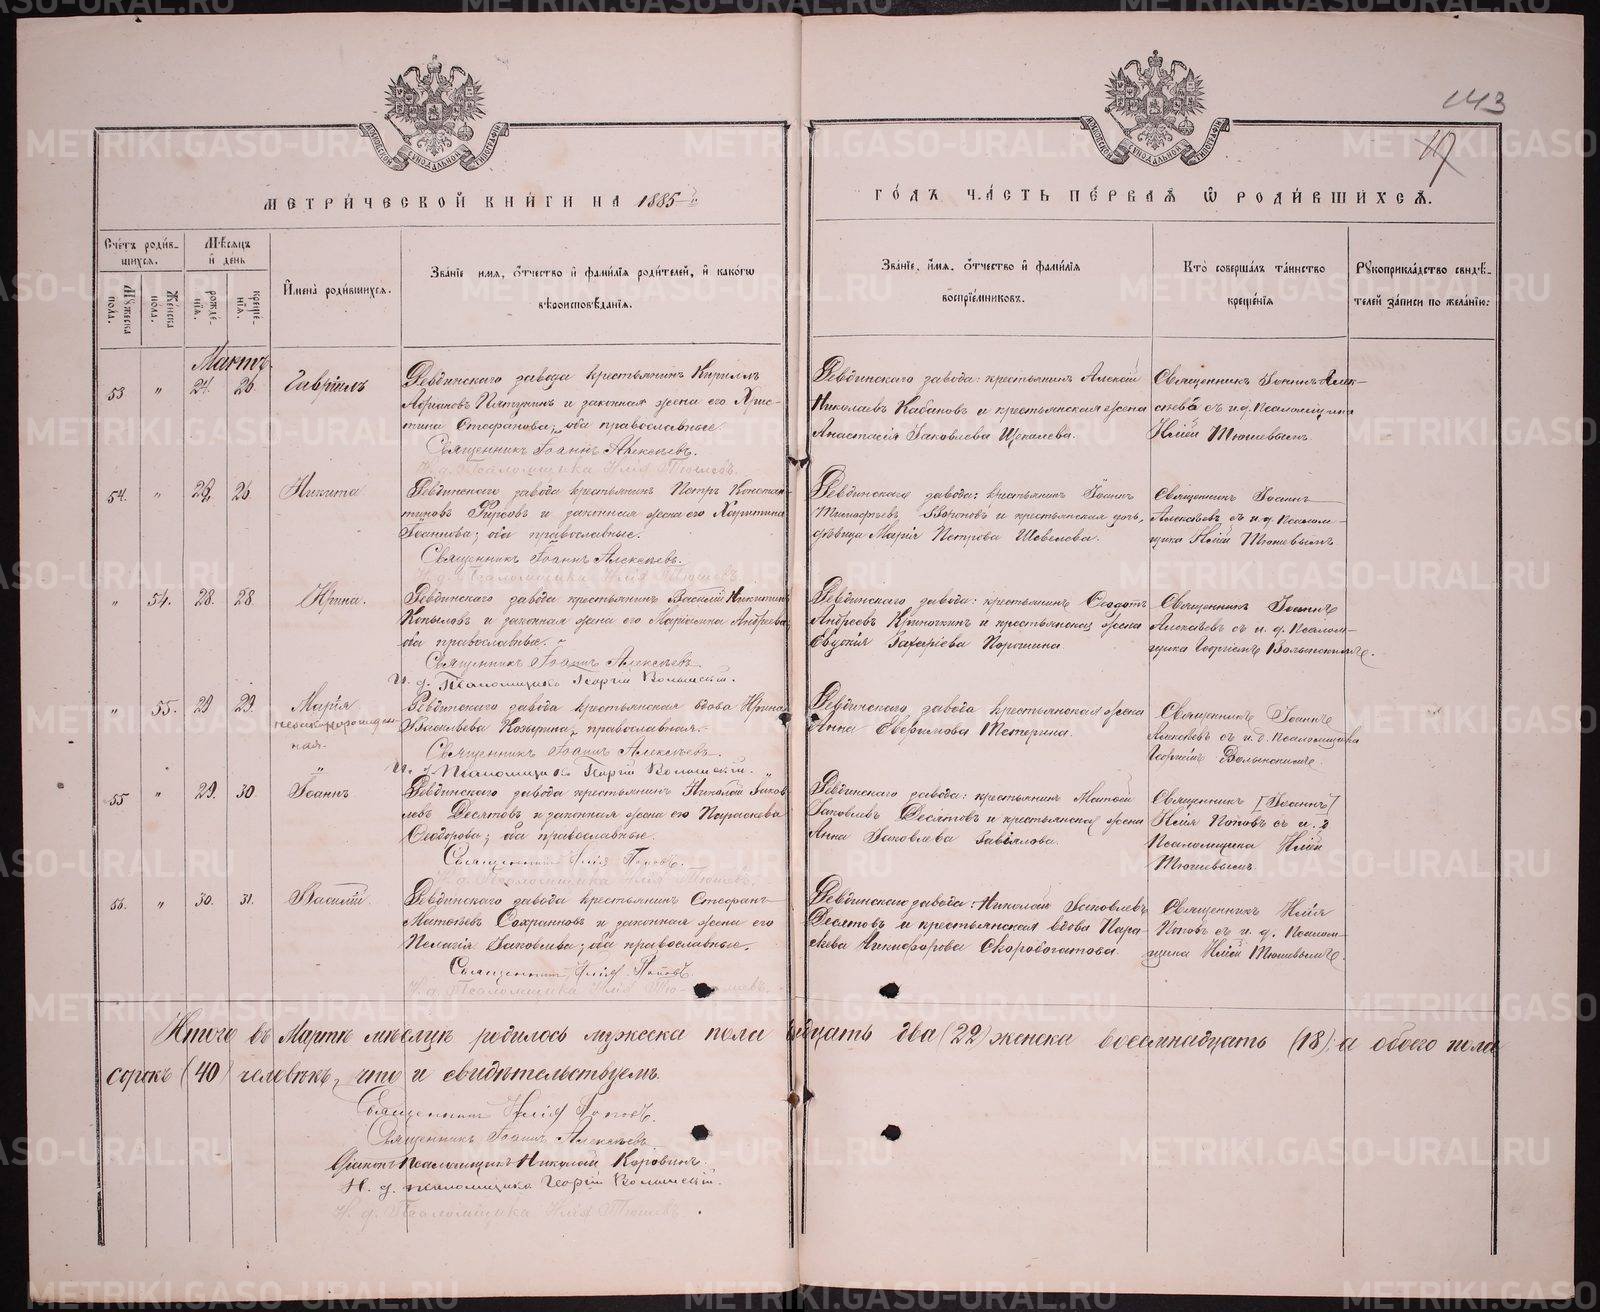 143
17
МЕТРИ́ЧЕСКОЙ КНИ́ГИ НА 1885 г.
ГО́ДЪ ЧА́СТЬ ПЕ́РВАЯ Ѿ РОДИ́ВШИХСЯ.
Сче́тъ роди́вшихся.
Мужеска пола.
Же́нска пола.
Мѣ́сяцъ и҆ день
рожде́нїя.
креще́нїя.
И҆мена̀ роди́вшихся.
Зва́нїе имя, ѻ҆́тчество и҆ фами́лїя роди́телей, и҆ како́гѡ
вѣроисповѣ́данїя.
Зва́нїе, и҆́мя, ѻ҆́тчество и҆ фами́лїя
воспрїе́мниковъ.
Кто̀ соверша́лъ та́инство
креще́нїя
Рꙋкоприкла́дство свидѣ́-
телей за́писи по жела́нїю:
Мартъ.
53 " 24. 26 Гавріилъ
Ревдинскаго завода крестьянинъ Кириллъ
Адріановъ Пятунинъ и законная жена его Хрис-
тина Стефанова; оба православные.
Священникъ Іоаннъ Алексѣевъ.
И. д. Псаломщика Илія Тюшевъ.
Ревдинскаго завода: крестьянинъ Алексѣй
Николаевъ Кабановъ и крестьянская жена
Анастасія Іаковлева Щекалева.
Священникъ Іоаннъ Алек-
сѣевъ съ и. д. Псаломщика
Иліей Тюшевымъ.
54. " 26. Никита
Ревдинскаго завода крестьянинъ Петръ Констан-
тиновъ Фирсовъ и законная жена его Харитина
Іоаннова; оба православные.
Священникъ Іоаннъ Алексѣевъ.
И. д. Псаломщика Илія Тюшевъ.
Ревдинскаго завода: крестьянинъ Іоаннъ
Тимофѣевъ Вороновъ и крестьянская дочь,
дѣвица Марія Петрова Шевелева.
Священникъ Іоаннъ
Алексѣевъ съ и. д. Псалом-
щика Иліей Тюшевымъ
" 54. 28. 28. Ирина.
Ревдинскаго завода крестьянинъ Василій Никитинъ
Копыловъ и законная жена его Маріамна Андреева
оба православные.
Священникъ Іоаннъ Алексѣевъ.
И. д. Псаломщика Георгій Волынскій.
Ревдинскаго завода: крестьянинъ Созонтъ
Андреевъ Криночкинъ и крестьянская жена
Евдокія Захаріева Порошина.
Священникъ Іоаннъ
Алексѣевъ съ и. д. Псалом-
щика Георгіемъ Волынскимъ.
" 55. 29 29. Марія
незаконнорожден-
ная.
Ревдинскаго завода крестьянская вдова Ирина
Васильева Козырина, православная.
Священникъ Іоаннъ Алексѣевъ.
И. д. Псаломщика Георгій Волынскій.
Ревдинскаго завода крестьянская жена
Анна Евфимова Тетерина.
Священникъ Іоаннъ
Алексѣевъ съ и. д. Псаломщика
Георгіемъ Волынскимъ.
55 " 29. 30. Іоаннъ
Ревдинскаго завода крестьянинъ Николай Іаков-
левъ Десятовъ и законная жена его Параскева
Ѳеодорова; оба православные.
Священникъ Илія Поповъ.
И. д. Псаломщика Илія Тюшевъ.
Ревдинскаго завода: крестьянинъ Матѳей
Іаковлевъ Десятовъ и крестьянская жена
Анна Іаковлева Завьялова.
Священникъ [Іоаннъ]
Илія Поповъ съ и. д
Псаломщика Иліей
Тюшевымъ
56. " 30. 31. Василій
Ревдинскаго завода крестьянинъ Стефанъ
Матѳеевъ Сохранновъ и законная жена его
Пелагія Іаковлева; оба православные.
Священникъ Илія Поповъ
И. д. Псаломщика Илія Тюшевъ.
Ревдинскаго завода: Николай Іаковлевъ
Десятовъ и крестьянская вдова Пара-
скева Никифорова Скоробогатова.
Священникъ Илія
Поповъ съ и. д. Псалом-
щика Иліей Тюшевымъ.
Итого въ Мартѣ мѣсяцѣ родилось мужеска пола двадцать два (22) женска восемнадцать (18); а обоего пола
сорокъ (40) человѣкъ, что и свидѣтельствуемъ.
Священникъ Илія Поповъ.
Священникъ Іоаннъ Алексѣевъ
Діаконъ Псаломщикъ Николай Коровинъ.
И. д. псаломщика Георгій Волынскій.
И. д. Псаломщика Илія Тюшевъ.
METRIKI.GASO-URAL.RU